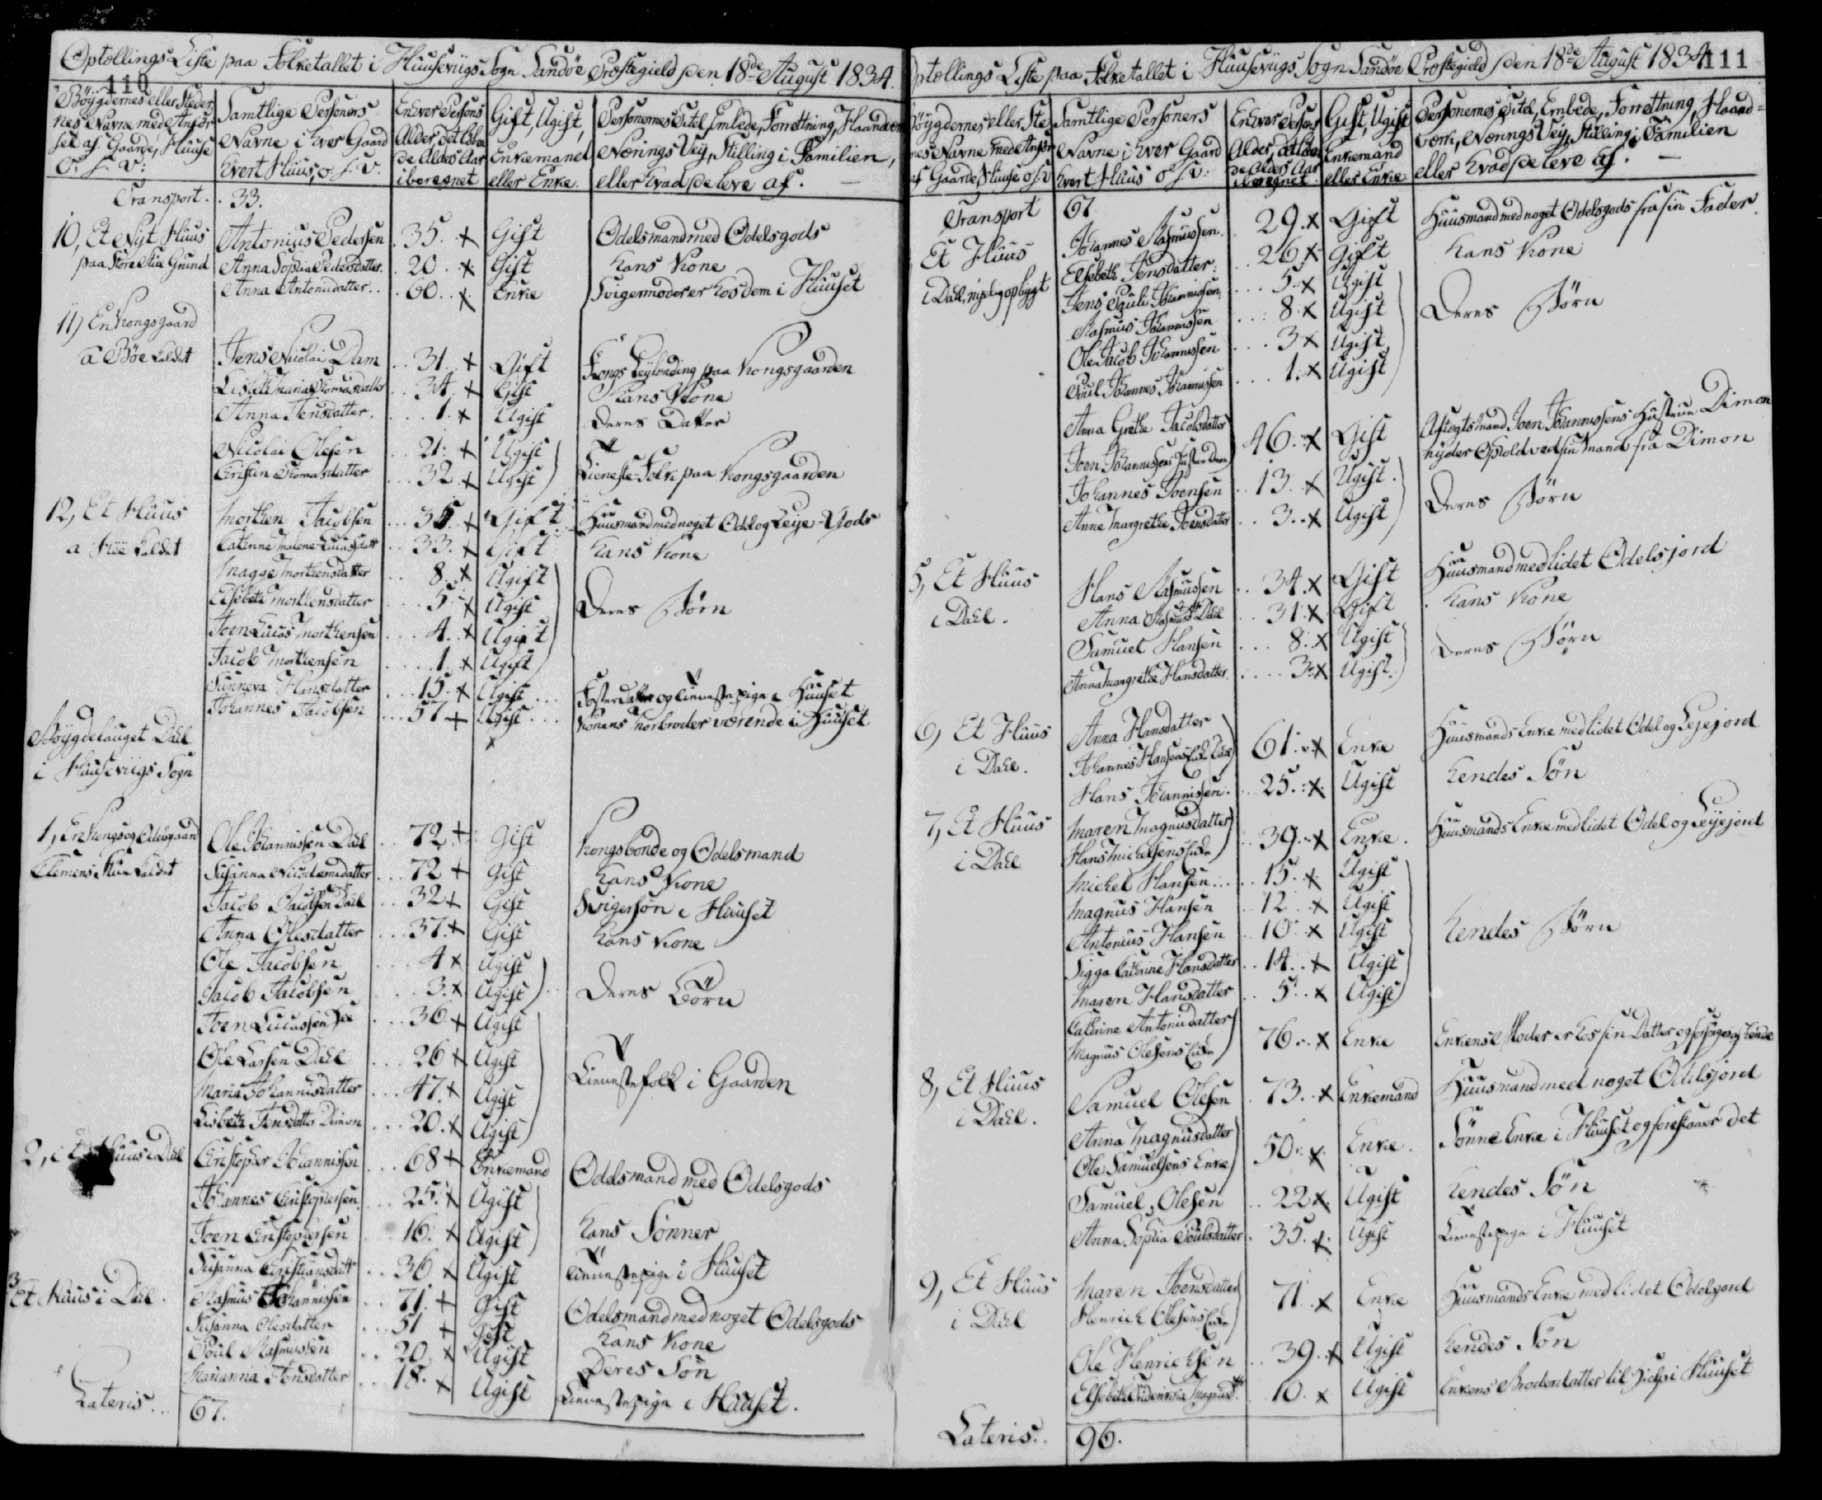 Optællings Liste paa Folketallet i Huuseviigs Sogn Sandøe Præstegield den 18de August 1834.
110
Bøygdernes eller Stæder
nes Navne med Anfør
sel af Gaarde, Huuse
o. s. v:
Samtlige Personers
Navne i hver Gaard
hvert Huus, o. s. v.
Enhver Persons
Alder, det løben
de Alders Aar
iberegnet
Gift, Ugift,
Enkemand
eller Enke.
Personernes Titel, Embede, Forretning, Haandværk
Nærings Vey, Stilling i Familien,
eller hvad de leve af. —
Transport. 33.
10, Et Nyt Huus Antonius Pedersen 35. x Gift Odelsmand med Odelsgods
paa Grund Anna Sophia Pedersdatter. 20. x Gift Hans Kone
Anna Antonidatter. 60. x Enke Svigermoder er hos dem i Huuset
11, En Kongsgaard
a Bøe kaldet Jens Nicolai Dam 31. x Gift Kongs paa Kongsgaarden
Lisbeth Maria Thomasdatter 34. x Gift Hans Kone
Anna Jensdatter. 1. x Ugift Deres Datter
Nicolai Olesen 21. x Ugift
Thomasdatter 32 x Ugift Tieneste Folk paa Kongsgaarden
12, Et Huus Morthen Jacobsen 35. x Gift Huusmand med noget Odel og Leye-Gods
a kaldet Catrine Malene 33. x Gift Hans Kone
Magge Morthensdatter 8. x Ugift
Elsebeth Morthensdatter 5. x Ugift Deres Børn
Joen Lucas Morthensen 4. x Ugift
Jacob Morthensen 1. x Ugift
Sunneva Hansdatter 15. x Ugift Fosterdatter og Tienestepige i Huuset
Johannes Jacobsen 57 + Ugift Konens Morbroder værende i Huuset
Bøygdelauget Dahl
i Huuseviigs Sogn
1, En Kongs og Odelsgaard Ole Johannissen Dahl 72 + Gift Kongsbonde og Odelsmand
Clemens kaldet Susanna datter 72 + Gift Hans Kone
Jacob Jacobsen Dahl 32 + Gift Svigersøn i Huuset
Anna Olesdatter 37. + Gift Hans Kone
Ole Jacobsen 4 x Ugift
Jacob Jacobsen 3. x Ugift Deres Børn
Joen Lucassen 36 + Ugift
Ole Larsen Dahl 26 + Ugift
Maria Johannisdatter 47. + Ugift Tienestefolk i Gaarden
Lisbeth Jensdatter Dimon 20. x Ugift
2, Et Huus i Dahl Christopher Johannissen 68 + Enkemand Odelsmand med Odelsgods
Johannes Christophersen 25. x Ugift
Joen Christophersen 16. x Ugift Hans Sønner
Susanna Christiansdatt 36 x Ugift Tienestepige i Huuset
3 Et Huus i Dahl. Rasmus Johannissen 71. + Gift Odelsmand med noget Odelsgods
Susanna Olesdatter 51 + Gift Hans Kone
Poul Rasmussen 20. x Ugift Deres Søn
Marianna Jonsdatter 18. x Ugift Tienestepige i Huuset.
Lateris. 67.
Optællings Liste paa Folketallet i Huusevigs Sogn Sandøe Præstegield den 18de August 1834.
111
Bøygdernes eller Stæ
nes Navne med Anfør
af Gaarde, Huuse o s v
Samtlige Personers
Navne i hver Gaard
hvert Huus o. s. v:
Enhver Persons
Alder, det løben
de Alders Aar
iberegnet
Gift, Ugift
Enkemand
eller Enke.
Personernes Titel, Embede, Forretning, Haand=
værk, Nærings Vey, Stilling i Familien
eller hvad de leve af. —
Transport 67
Et Huus Johannes Rasmussen 29. x Gift Huusmand med noget Odelsgods fra sin Fader.
i Dahl, nyelig opbygt Elsebeth Jensdatter: 26. x Gift Hans Kone
Jens Pauli Johannissen 5. x Ugift
Rasmus Johannissen 8. x Ugift Deres Børn
Ole Jacob Johannissen 3 x Ugift
Poul Johannes Johannissen 1. x Ugift
Anna Grethe Jacobsdatter
Joen Johannissens Hustrue 46. x Gift Aftægtsmand Joen Johannissens Hustrue Dimon
nyder Ophold ved sin Mand fra Dimon
Johannes Joensen 13. x Ugift.
Anne Margrethe Joensdatter 3. x Ugift Deres Børn
5, Et Huus Hans Rasmussen 34. x Gift Huusmand med lidet Odelsjord
i Dahl. Anna Dahl 31. x Gift Hans Kone
Samuel Hansen 8. x Ugift
Anna Margrethe Hansdatter 3. x Ugift. Deres Børn
6, Et Huus Anna Hansdatter
i Dahl. Johannes Hansens Enke Dahl 61. x Enke Huusmands Enke med lidet Odel og Lejejord
Hans Johannissen. 25. x Ugift Hendes Søn
7, Et Huus Maren Magnusdatter
i Dahl Hans Michelsens Enke 39. x Enke. Huusmands Enke med lidet Odel og Leyejord
Michel Hansen 15. x Ugift
Magnus Hansen 12. x Ugift
Antonius Hansen 10. x Ugift Hendes Børn
Sigga Cathrine Hansdatter 14. x Ugift
Maren Hansdatter 5. x Ugift
Cathrine Antonidatter
Magnus Olesens Enke 76. x Enke Enkens Moder er hos sin Datter og forsørges af hende
8, Et Huus Samuel Olesen 73. x Enkemand Huusmand med noget Odelsjord
i Dahl. Anna Magnusdatter
Ole Samuelsens Enke 50. x Enke. Sønne Enke i Huuset og forestaaer det
Samuel Olesen 22 x Ugift Hendes Søn
Anna Sophia Poulsdatter 35. x Ugift Tienestepige i Huuset
9, Et Huus Maren Joensdatter
i Dahl Henrich Olesens Enke 71. x Enke Huusmands Enke med lidet Odelsjord
Ole Henrichsen 39. x Ugift Hendes Søn
Elsebeth Magnusd 10. x Ugift Enkens Broderdatter til i Huuset
Lateris. 96.